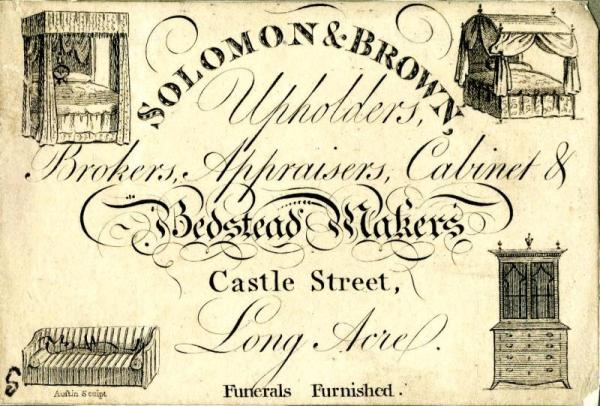 SOLOMON & BROWN,
Upholders,
Brokers, Appraisers, Cabinet &
Bedstead Makers
Castle Street,
Long Acre.
Austin Sculpt
Funerals Furnished.